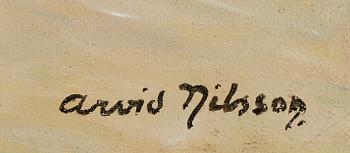 arvid Nilsson